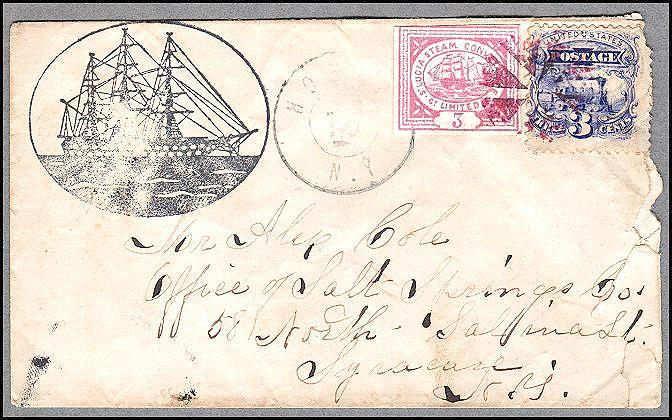 ST. LUCIA STEAM CONV
Cº LIMITED
3
UNITED STATES
POSTAGE
3
CENTS
N.Y
Mr Alex Cole
Office of Salt Springs Co.
58 North Salina St.
Syracuse
N.Y.